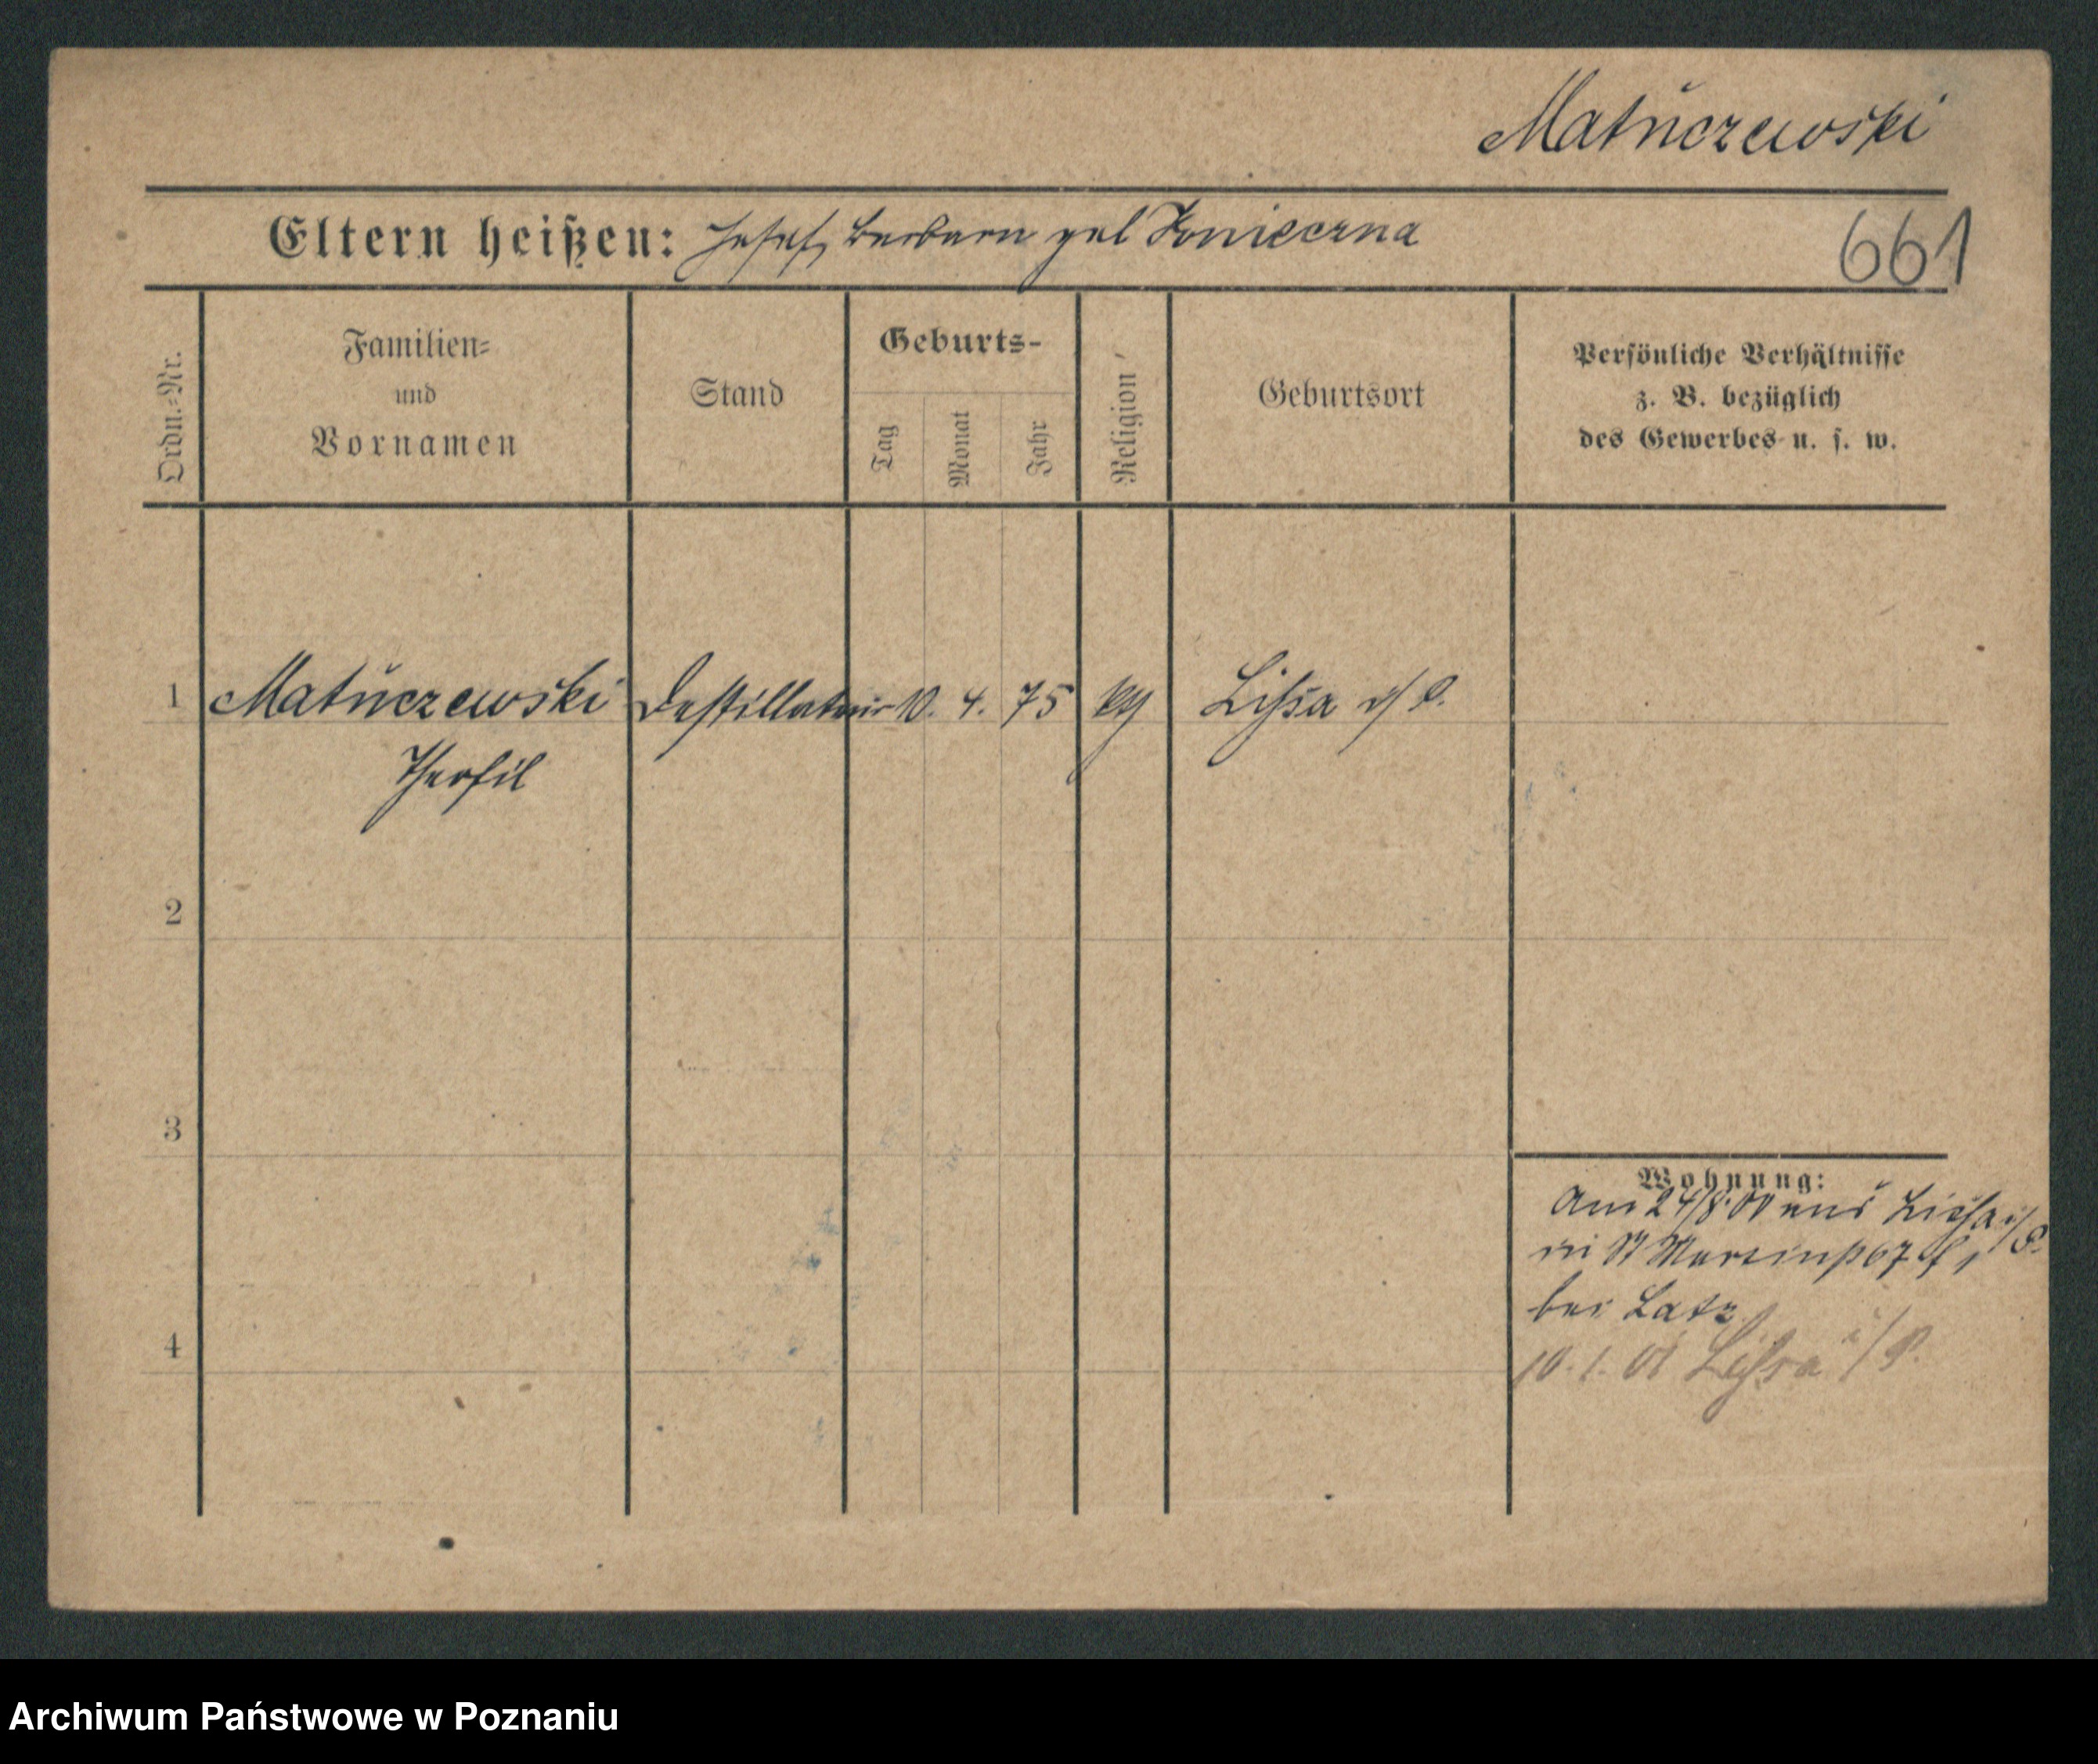 Matuczewski
Eltern heißen: Josef, Barbara geb Konieczna
661
Ordn.=Nr.
Familien=
und
Vornamen
Stand
Geburts-
Tag
Monat
Jahr
Religion
Geburtsort
Persönliche Verhältnisse
z. B. bezüglich
des Gewerbes u. s. w.
1 Matuczewski Destillateur 10. 4. 75 kth Lissa i/P.
Theofil
2
3
4
Wohnung:
Am 24/8. 00 aus Lissa i/P.
in St Martinstr 67
bei Latz
10. 1. 01 Lissa i/P.
Archiwum Państwowe w Poznaniu